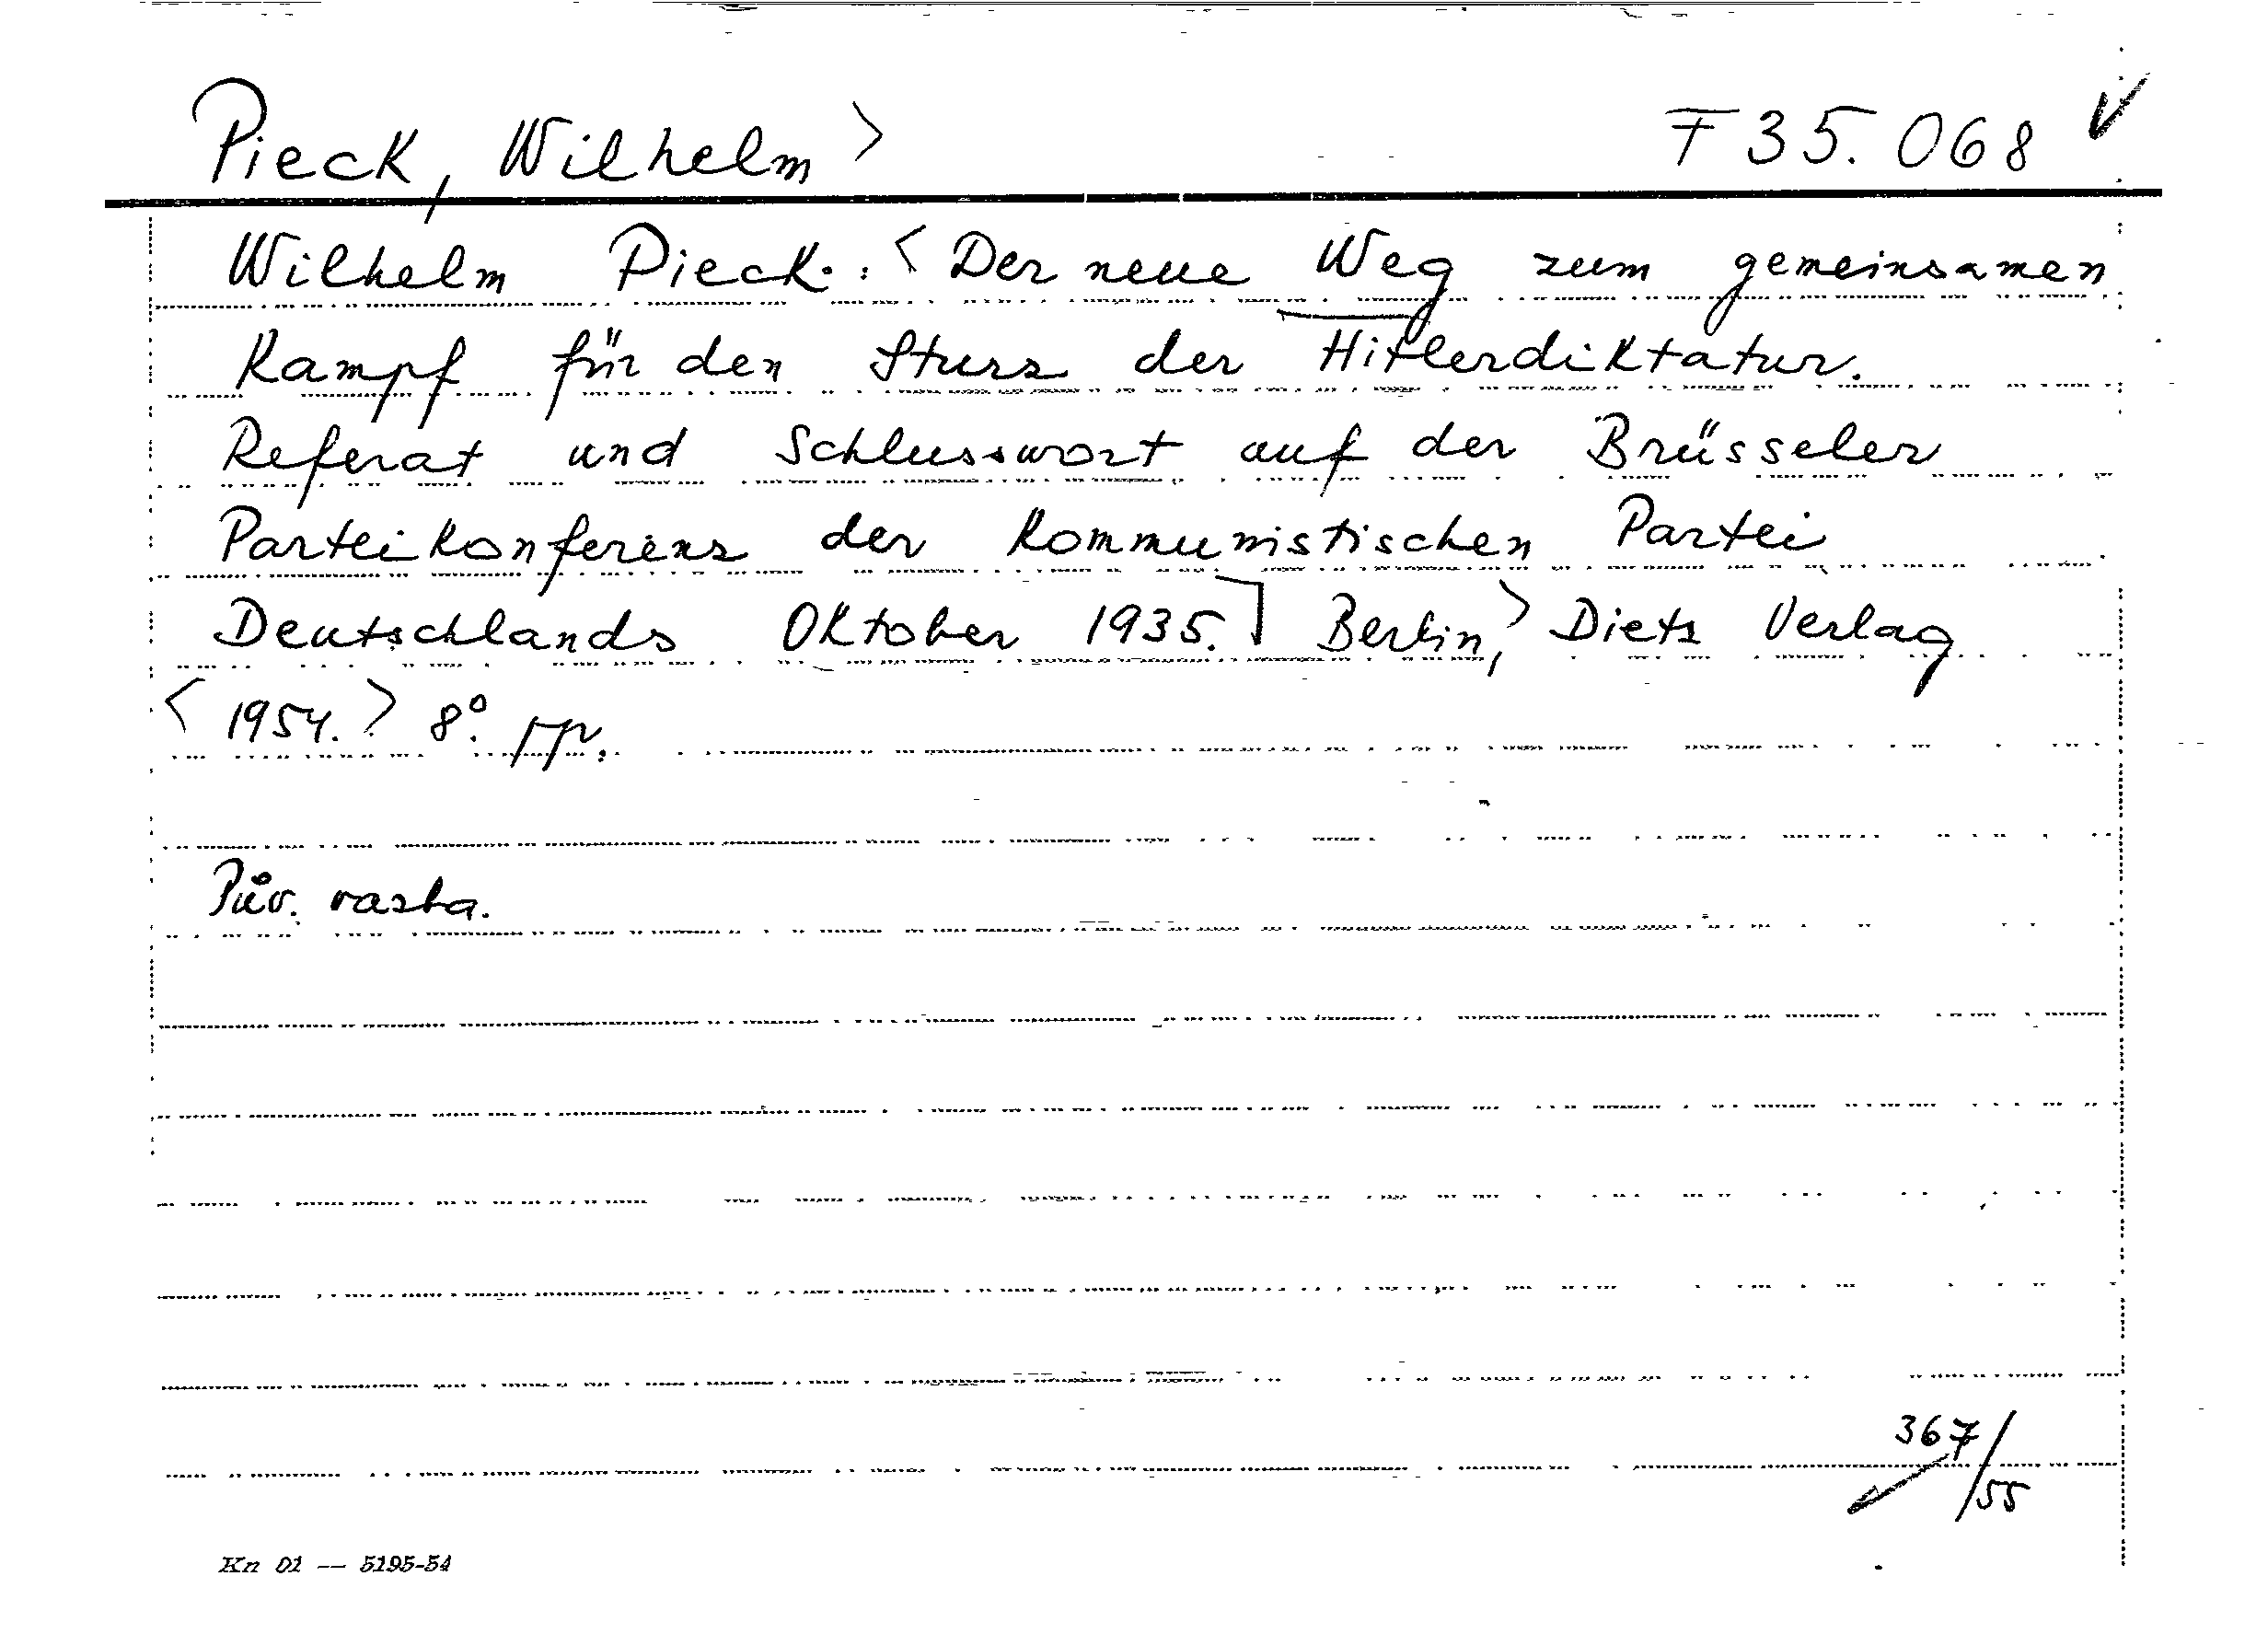 Pieck, Wilhelm > F 35.068 ✓
Wilhelm Pieck.: < Der neue Weg zum gemeinsamen
Kampf für den Sturz der Hitlerdiktatur.
Referat und Schlusswort auf der Brüsseler
Parteikonferenz der Kommunistischen Partei
Deutschlands Oktober 1935.] Berlin,> Dietz Verlag
< 1954. > 8°. pp.
Pův. vazba.
367/55
Kn 01 — 5195-54